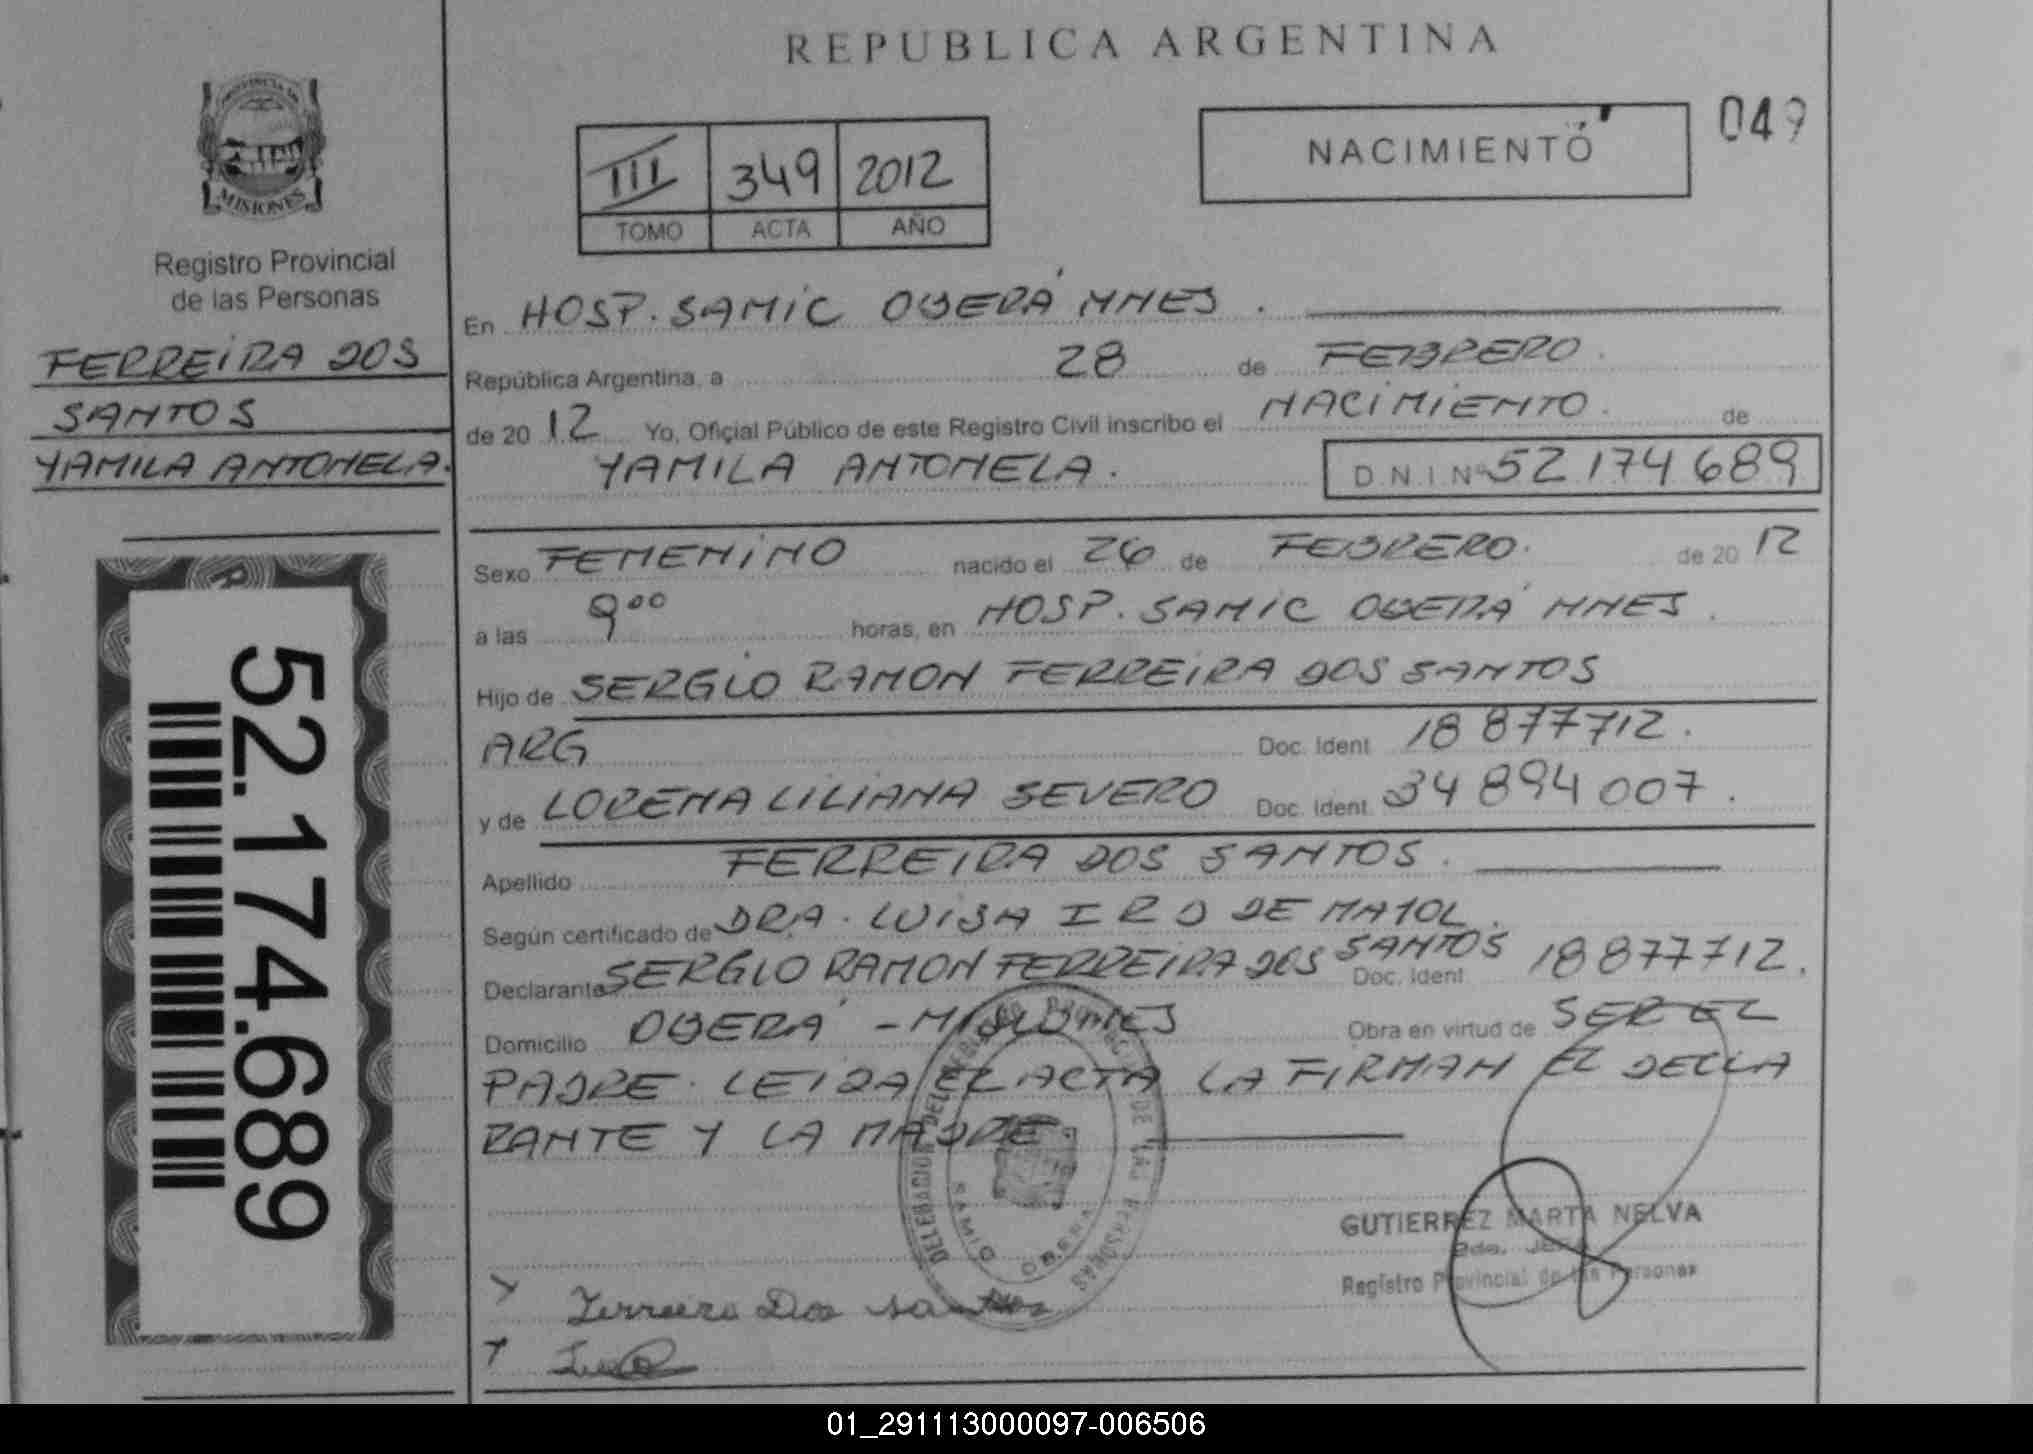 REPUBLICA ARGENTINA
049
NACIMIENTO
III 349 2012
TOMO ACTA AÑO
PROVINCIA DE
MISIONES
Registro Provincial
de las Personas
FERREIRA DOS
SANTOS
YAMILA ANTONELA.
52.174.689
En HOSP. SAMIC OBERÁ MNES.
República Argentina, a 28 de FEBRERO.
de 20 12 Yo, Oficial Público de este Registro Civil inscribo el NACIMIENTO. de
YAMILA ANTONELA. D.N.I Nº 52174689
Sexo FEMENINO nacido el 26 de FEBRERO. de 20 12
a las 9 00 horas, en HOSP. SAMIC OBERÁ MNES.
Hijo de SERGIO RAMON FERREIRA DOS SANTOS
ARG Doc. Ident 18 877712.
y de LORENA LILIANA SEVERO Doc. Ident. 34 894 007.
Apellido FERREIRA DOS SANTOS.
Según certificado de DRA. LUISA
Declarante SERGIO RAMON FERREIRA DOS SANTOS Doc. Ident 18877712.
Domicilio OBERÁ - MISIONES Obra en virtud de SER EL
PADRE. LEIDA EL ACTA LA FIRMAN EL DECLA
RANTE Y LA MADRE
DE LAS PERSONAS
SAMIC
OBERA
GUTIERREZ MARTA NELVA
2do. Jefe
Registro Provincial de las Personas
Ferreira Dos Santos
01_291113000097-006506